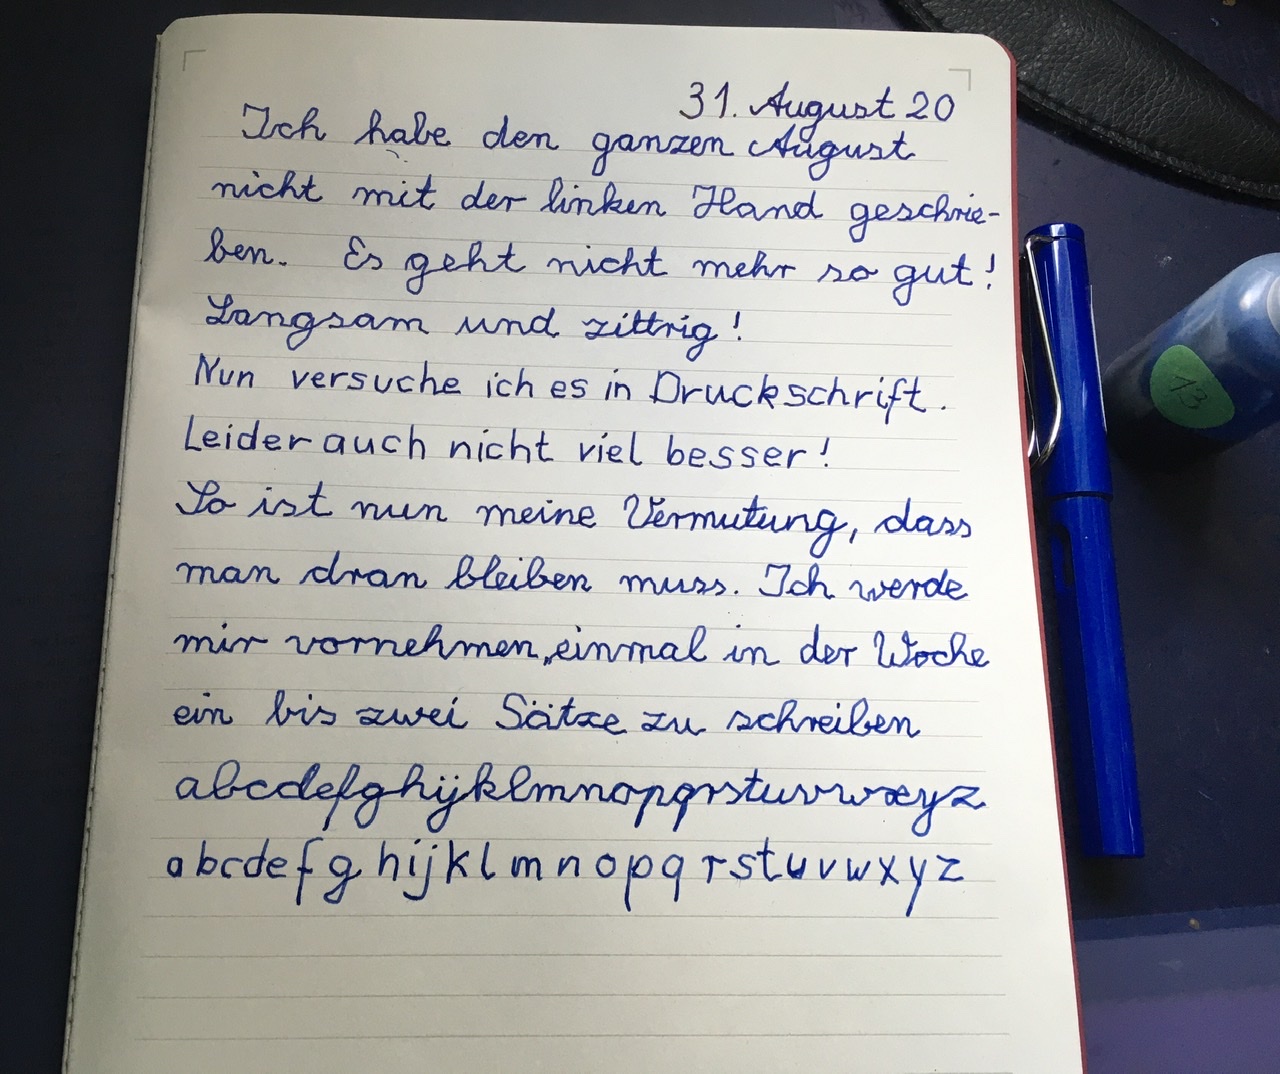 31. August 20
Ich habe den ganzen August
nicht mit der linken Hand geschrie-
ben. Es geht nicht mehr so gut!
Langsam und zittrig!
Nun versuche ich es in Druckschrift.
Leider auch nicht viel besser!
So ist nun meine Vermutung, dass
man dran bleiben muss. Ich werde
mir vornehmen, einmal in der Woche
ein bis zwei Sätze zu schreiben
abcdefghijklmnopqrstuvwxyz
abcdefghijklmnopqrstuvwxyz
13